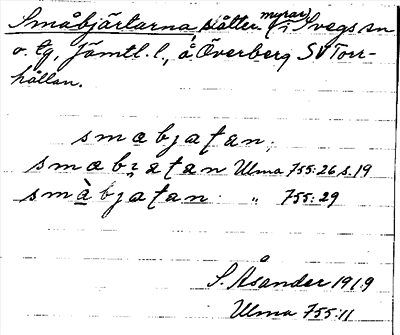 Småbjärtarna, slåtter (myrar) i Svegs sn
o. tg, Jämtl. l., å Överberg SV Torr-
hållan.
smabjatan,
smabjatan Ulma 755:26 s. 19
småbjatan " 755:29
S. Åsander 1919
Ulma 755:11